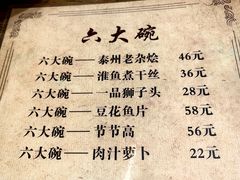 六大碗
六大碗——泰州老杂烩 46元
六大碗——淮鱼煮干丝 36元
六大碗——一品狮子头 28元
六大碗——豆花鱼片 58元
六大碗——节节高 56元
六大碗——肉汁萝卜 22元